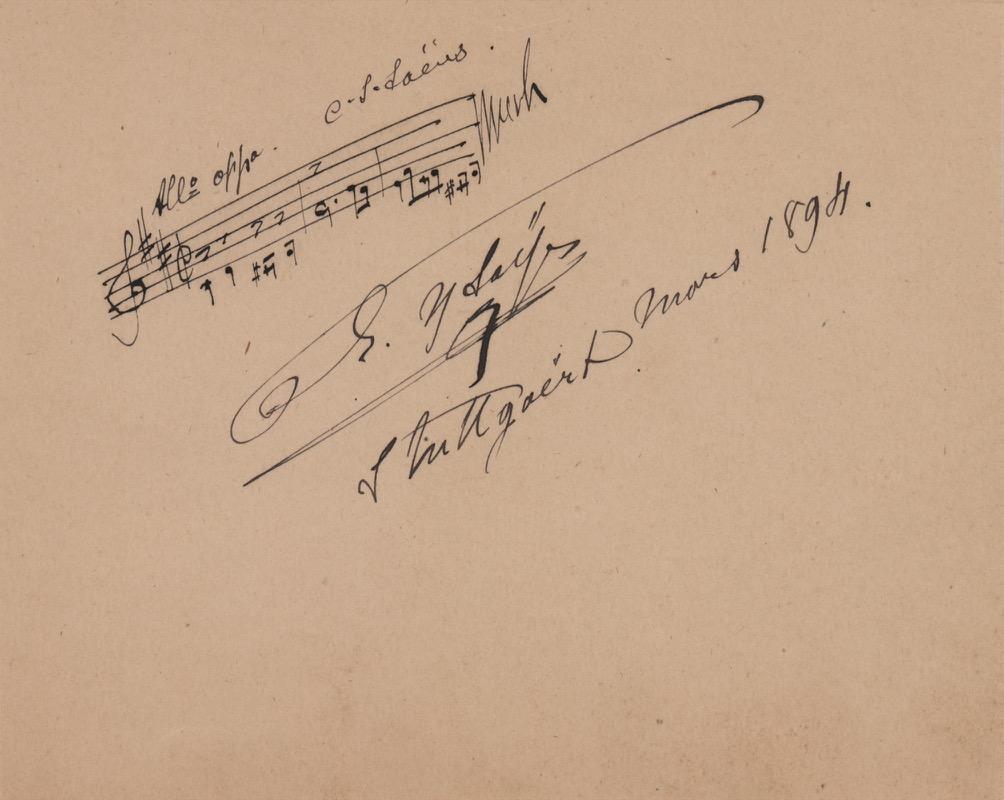 C. S. Saëns.
All° appo.
E. Ysaÿe
Stuttgaërt Mars 1894.